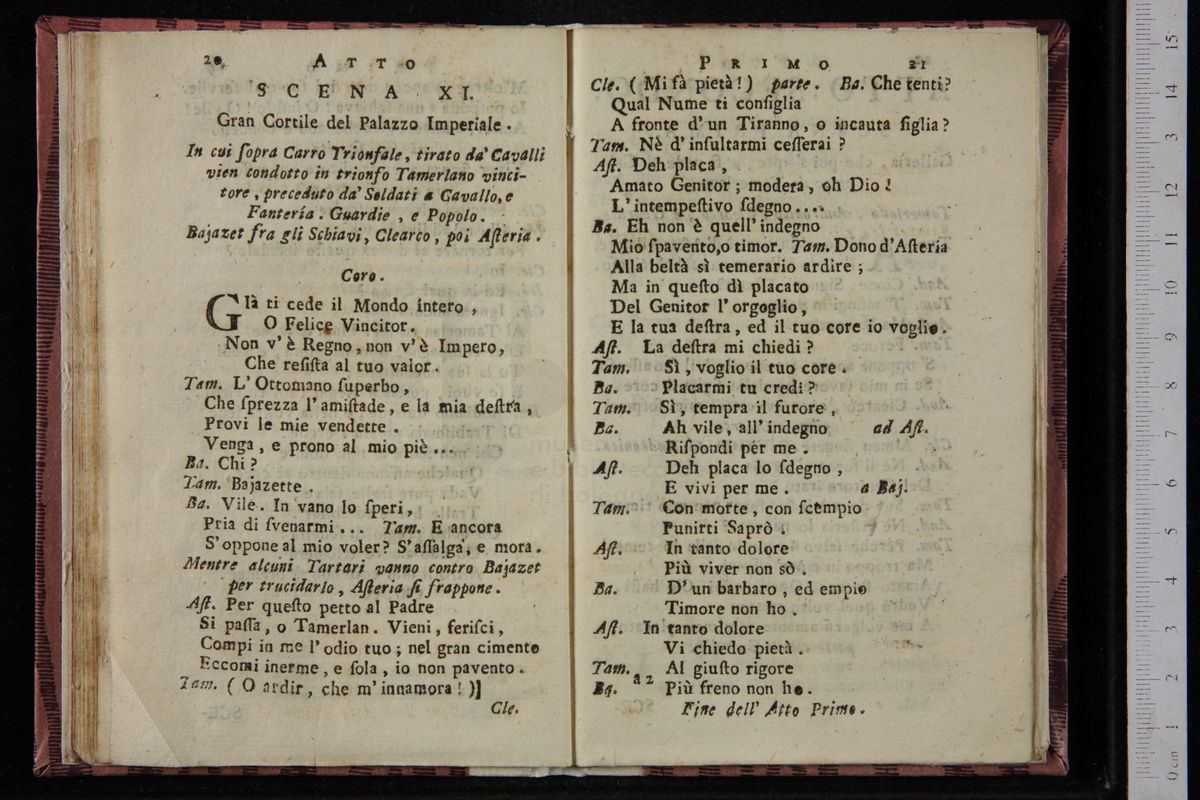 20 ATTO
SCENA XI.
Gran Cortile del Palazzo Imperiale.
In cui ſopra Carro Trionfale, tirato da' Cavalli
vien condotto in trionfo Tamerlano vinci-
tore, preceduto da' Soldati a Cavallo, e
Fantería. Guardie, e Popolo.
Bajazet fra gli Schiavi, Clearco, poi Aſteria.
Coro.
Già ti cede il Mondo intero,
O Felice Vincitor.
Non v'è Regno, non v'è Impero,
Che reſiſta al tuo valor.
Tam. L'Ottomano ſuperbo,
Che ſprezza l'amiſtade, e la mia deſtra,
Provi le mie vendette.
Venga, e prono al mio piè...
Ba. Chi?
Tam. Bajazette.
Ba. Vile. In vano lo ſperi,
Pria di ſvenarmi... Tam. E ancora
S'oppone al mio voler? S'aſſalga, e mora.
Mentre alcuni Tartari vanno contro Bajazet
per trucidarlo, Aſteria ſi frappone.
Aſt. Per queſto petto al Padre
Si paſſa, o Tamerlan. Vieni, feriſci,
Compi in me l'odio tuo; nel gran cimento
Eccomi inerme, e ſola, io non pavento.
Tam. (O ardir, che m'innamora!)]
Cle.
PRIMO 21
Cle. (Mi fà pietà!) parte. Ba. Che tenti?
Qual Nume ti conſiglia
A fronte d'un Tiranno, o incauta figlia?
Tam. Nè d'inſultarmi ceſſerai?
Aſt. Deh placa,
Amato Genitor; modera, oh Dio!
L'intempeſtivo ſdegno....
Ba. Eh non è quell'indegno
Mio ſpavento, o timor. Tam. Dono d'Aſteria
Alla beltà sì temerario ardire;
Ma in queſto dì placato
Del Genitor l'orgoglio,
E la tua deſtra, ed il tuo core io voglio.
Aſt. La deſtra mi chiedi?
Tam. Sì, voglio il tuo core.
Ba. Placarmi tu credi?
Tam. Sì, tempra il furore,
Ba. Ah vile, all'indegno ad Aſt.
Riſpondi per me.
Aſt. Deh placa lo ſdegno,
E vivi per me. a Baj.
Tam. Con morte, con ſcempio
Punirti Saprò.
Aſt. In tanto dolore
Più viver non sò.
Ba. D'un barbaro, ed empio
Timore non ho.
Aſt. In tanto dolore
Vi chiedo pietà.
Tam. Al giuſto rigore
Ba. a 2 Più freno non ho.
Fine dell'Atto Primo.